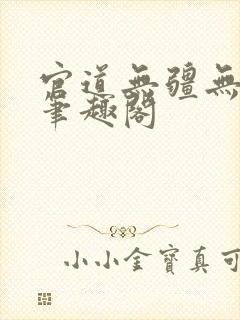 官道無疆無
筆趣閣
小小金寶真可